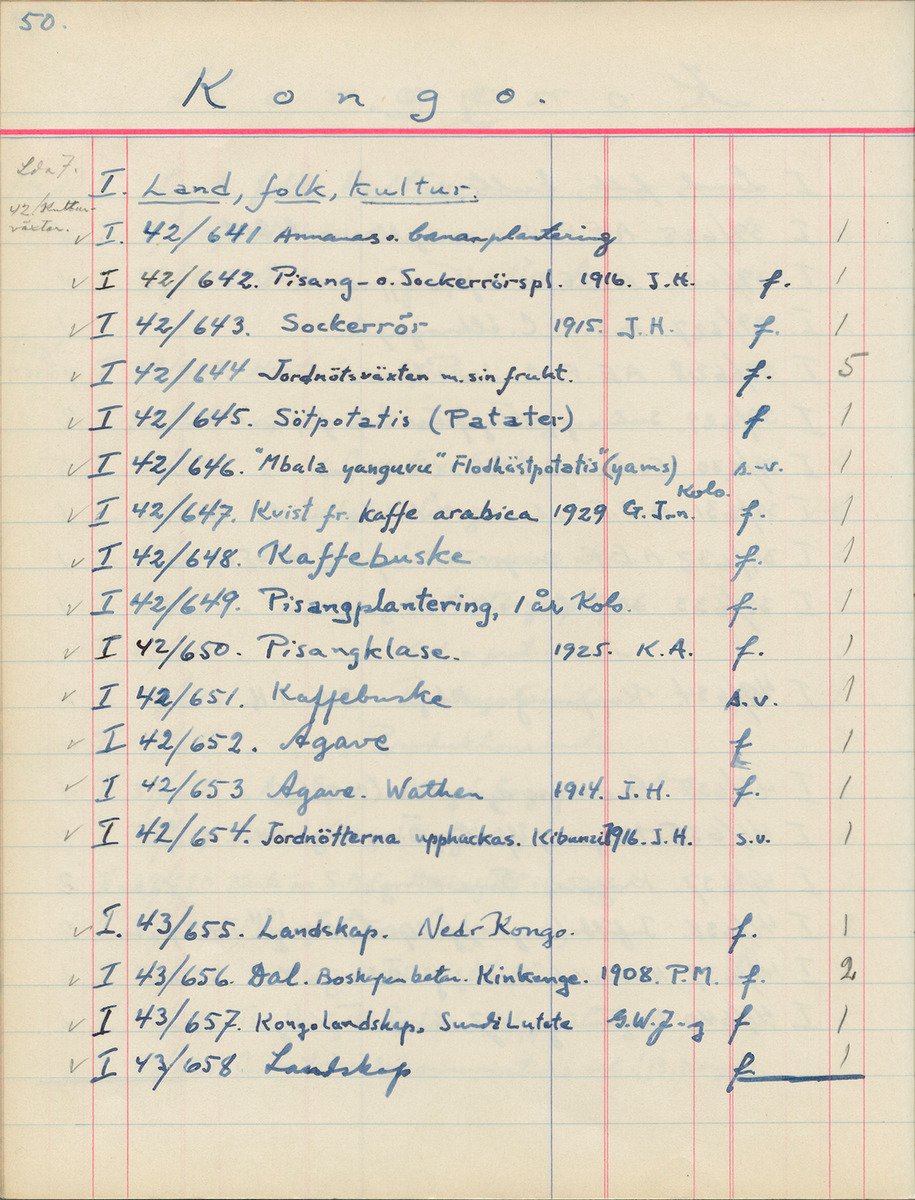 50.
Kongo.
Lda 7.
I. Land, folk, kultur.
42/Kultur-
växter.
✓ I. 42/641 Annanas o. bananplantering 1
✓ I 42/642. Pisang- o. Sockerrörspl. 1916. J.H. f. 1
✓ I 42/643. Sockerrör 1915. J.H. f. 1
✓ I 42/644 Jordnötsväxten m. sin frukt. f. 5
✓ I 42/645. Sötpotatis (Patater) f 1
✓ I 42/646. "Mbala yanguvu" Flodhästpotatis" (yams) s.-v. 1
✓ I 42/647. Kvist fr. kaffe arabica 1929 G.J-n. Kolo. f. 1
✓ I 42/648. Kaffebuske f. 1
✓ I 42/649. Pisangplantering, 1 år Kolo. f. 1
✓ I 42/650. Pisangklase. 1925. K.A. f. 1
✓ I 42/651. Kaffebuske s.v. 1
✓ I 42/652. Agave f 1
✓ I 42/653 Agave. Wathen 1914. J.H. f. 1
✓ I 42/654. Jordnötterna upphackas. Kibunzi 1916. J.H. s.v. 1
✓ I. 43/655. Landskap. Nedr Kongo. f. 1
✓ I 43/656. Dal. Boskapen betar. Kinkenge. 1908. P.M. f. 2
✓ I 43/657. Kongolandskap. Sundi Lutete G.W.J-g f 1
✓ I 43/658 Landskap f 1